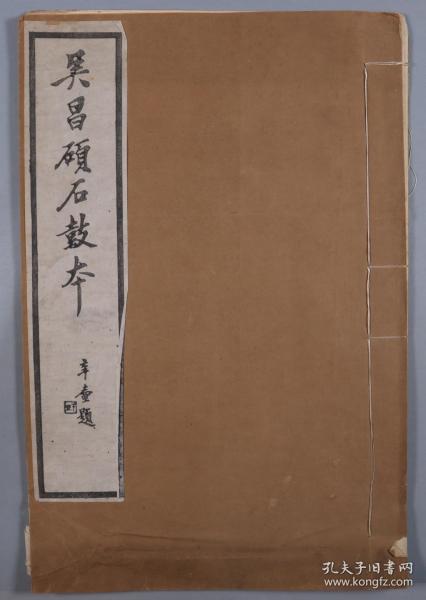 吴昌碩石鼓本
辛壷題
孔夫子旧书网
www.kongfz.com